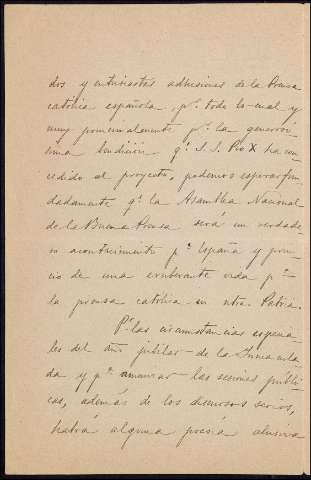 dos y entusiastas adhesiones de la Prensa
católica española, pr. todo lo cual y
muy principalmente pr. la generosí-
sima bendición qe. S. S. Pio X ha con-
cedido al proyecto, podemos esperar fun-
dadamente qe. la Asamblea Nacional
de la Buena Prensa será un verdade-
ro acontecimiento pa. España y prin-
cio de una exuberante vida pa.
la prensa católica en ntra. Patria.
Pr. las circunstancias especia-
les del año jubilar de la Inmacula-
da y pa. amenizar las sesiones públi-
cas, además de los discursos serios,
habrá alguna poesía alusiva